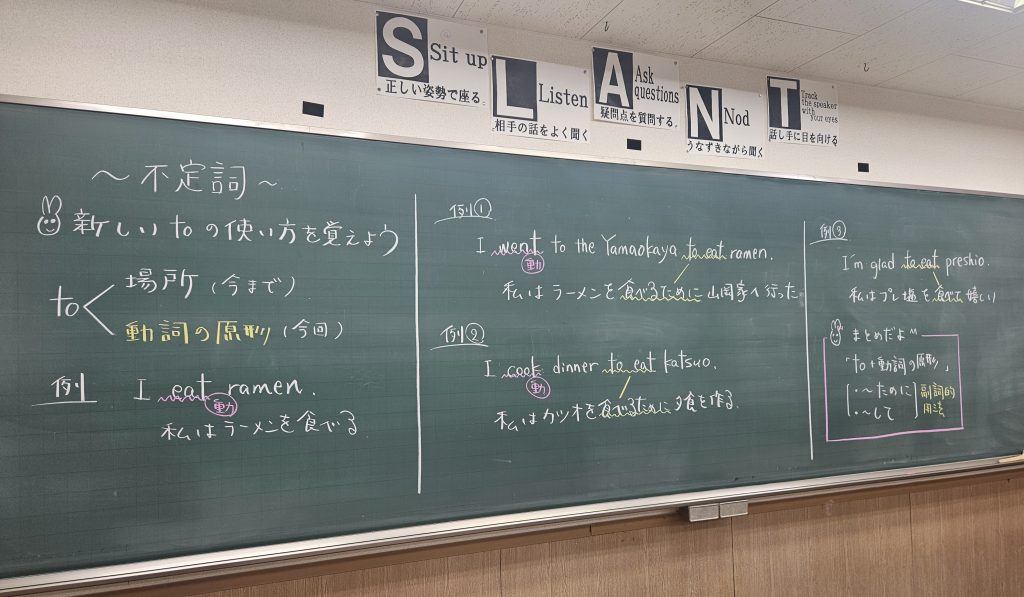 S Sit up
正しい姿勢で座る。
L Listen
相手の話をよく聞く
A Ask questions
疑問点を質問する。
N Nod
うなずきながら聞く
T Track the speaker with your eyes
話し手に目を向ける
～不定詞～
新しいtoの使い方を覚えよう
to
場所(今まで)
動詞の原形(今回)
例 I eat ramen.
動
私はラーメンを食べる
例①
I went to the Yamaokaya to eat ramen.
動
私はラーメンを食べるために山岡家へ行った
例②
I cook dinner to eat katsuo.
動
私はカツオを食べるために夕食を作る.
例③
I'm glad to eat preshio.
私はプレ塩を食べて嬉しい
まとめだよ^^
「to+動詞の原形」
・～ために
・～して
副詞的
用法